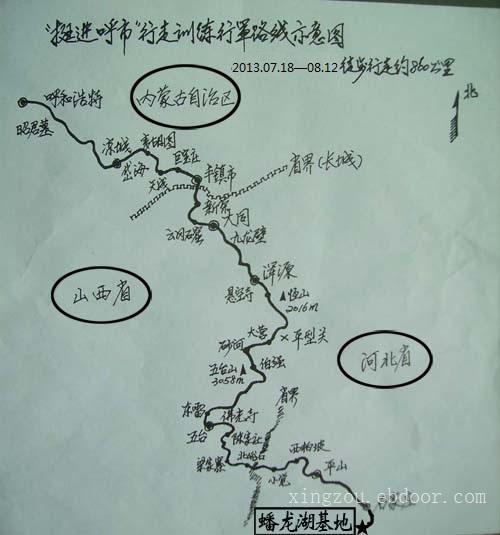 "挺进呼市"行走训练行军路线示意图
2013.07.18—08.12 徒步行走约860公里
北
呼和浩特
内蒙古自治区
昭君墓
凉城
岱海
巨宝庄
丰镇市
省界(长城)
新荣
大同
云冈石窟
九龙壁
浑源
悬空寺
恒山
2016m
山西省
大营
平型关
砂河
伯强
五台山
3058m
河北省
东雷
佛光寺
五台
省界
陈家庄
梁家寨
北峪口
西柏坡
小觉
平山
xingzou.ebdoor.com
蟠龙湖基地